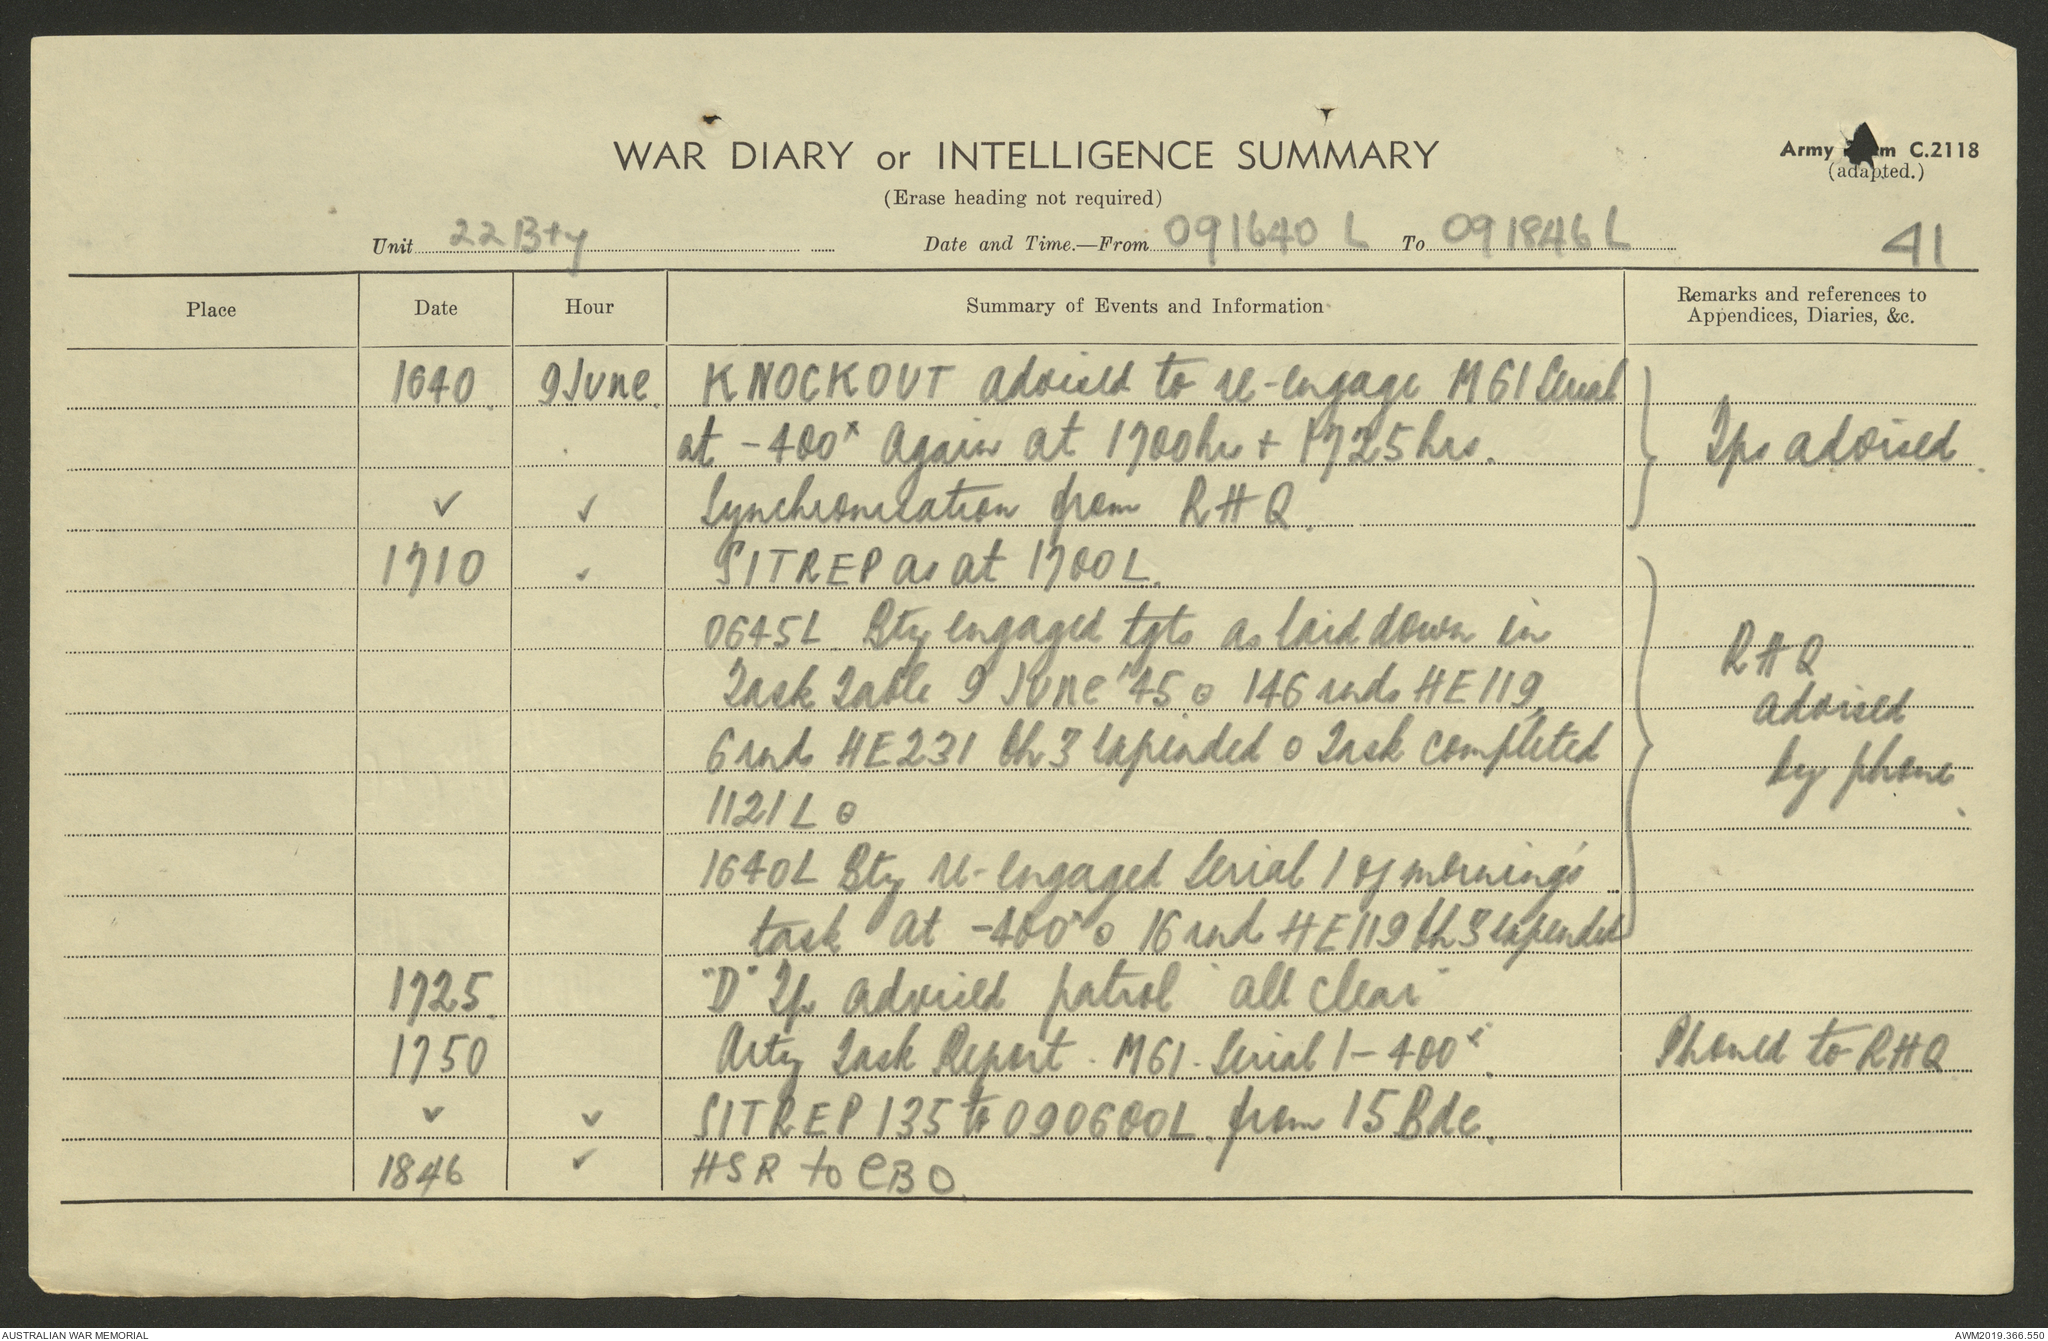 WAR DIARY or INTELLIGENCE SUMMARY
Army C.2118
(adapted.)
(Erase heading not required)
Unit 22 Bty Date and Time.—From 091640 L To 091846 L
41
Place Date Hour Summary of Events and Information Remarks and references to Appendices, Diaries, &c.
1640. 9 June. KNOCKOUT advised to re-engage M61 Serial
at -400ˣ again at 1700hrs + 1725hrs. Tps advised.
✓ ✓ Synchronisation from RHQ.
1710 ✓ SITREP as at 1700L.
0645L Bty engaged tgts as laid down in
Task Table 9 June '45 o 146 rnds HE 119, RHQ
6 rnds HE 231 Ch 3 expended o Task completed advised
1121 L o by phone.
1640L Bty re-engaged Serial 1 of morning's
task at -400ˣ o 16 rnds HE 119 Ch 3 expended
1725. "D" Tp advised patrol "all clear"
1750 Arty Task Report - M61 - Serial 1 - 400ˣ. Phoned to RHQ
✓ ✓ SITREP 135 to 090600L from 15 Bde.
1846 ✓ HSR to CBO.
AUSTRALIAN WAR MEMORIAL AWM2019.366.550